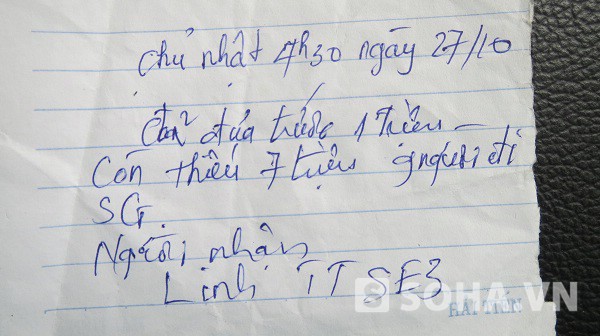 Chủ nhật 7h30 ngày 27/10
đứa trước 1 triệu –
Còn thiếu 7 triệu 9 người đi
SG.
Người nhận
Linh TT SE3
SOHA.VN